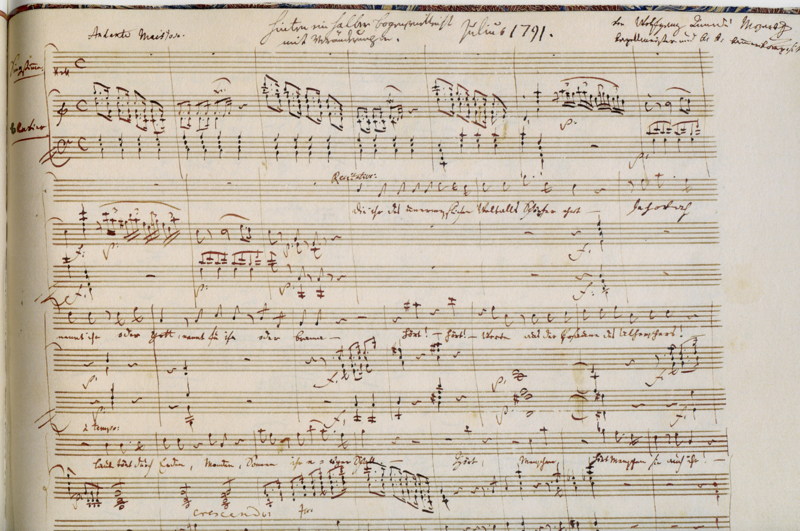 Andante Maestoso.
hinten ein halber
mit Veränderungen.
Julius 1791.
Wolfgang Amadè Mozart
kapellmeister und k: k:
Singstimme
Clavier
Recitativ:
die ihr des unermesslichen Weltalls Schöpfer ehrt —
Jehovah
nennt ihn oder Gott, nennt Fu ihn oder Brama —
hört! — hört! — Worte aus der Posaune des Allherrschers!
à tempo:
laut tönt durch Erden, Monden, Sonnen ihr ewger Schall —
hört, Menschen, hört Menschen sie auch ihr —
crescendo for: